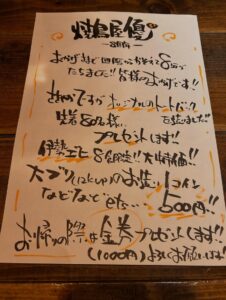 焼鳥屋優
8周年
おかげさまで四国から
8年が
たちました!! 皆様のおかげです!!
ですがオリジナルのトートバック
先着80名様
を
プレゼントします!!
伊勢エビ8匹限定!! 大特価!!
大ブリ(12kgup)のお造り1コイン
などなどetc... 500円!!
お帰りの際は金券プレゼントします!!
(1000円)よろしくお願いします!